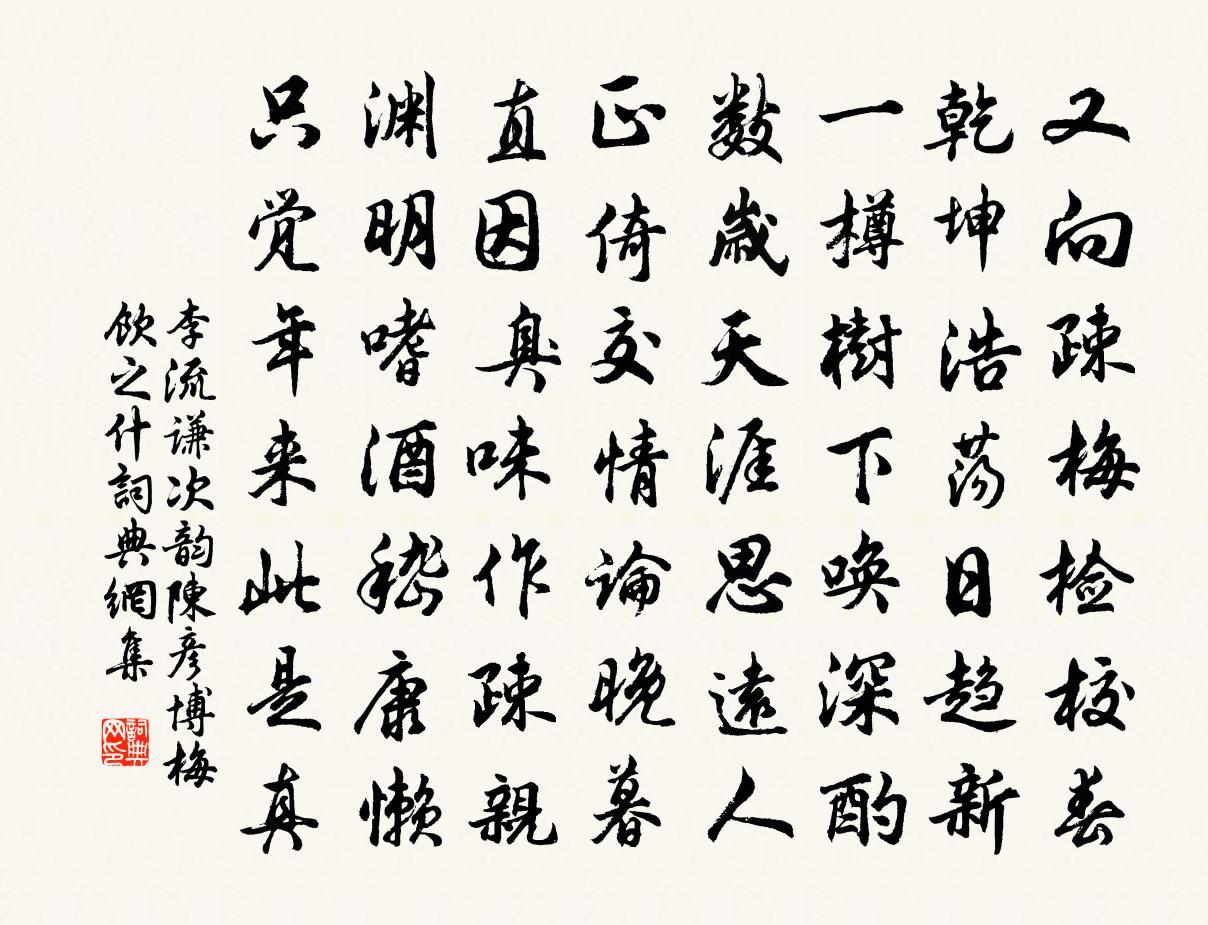 又向疎梅检校春
乾坤浩荡日趋新
一樽樹下唤深酌
数歳天涯思遠人
正倚交情論晚暮
直因臭味作疎親
渊明嗜酒嵇康懒
只觉年来此是真
李流谦次韵陳彦博梅
飲之什詞典網集
詞典网印